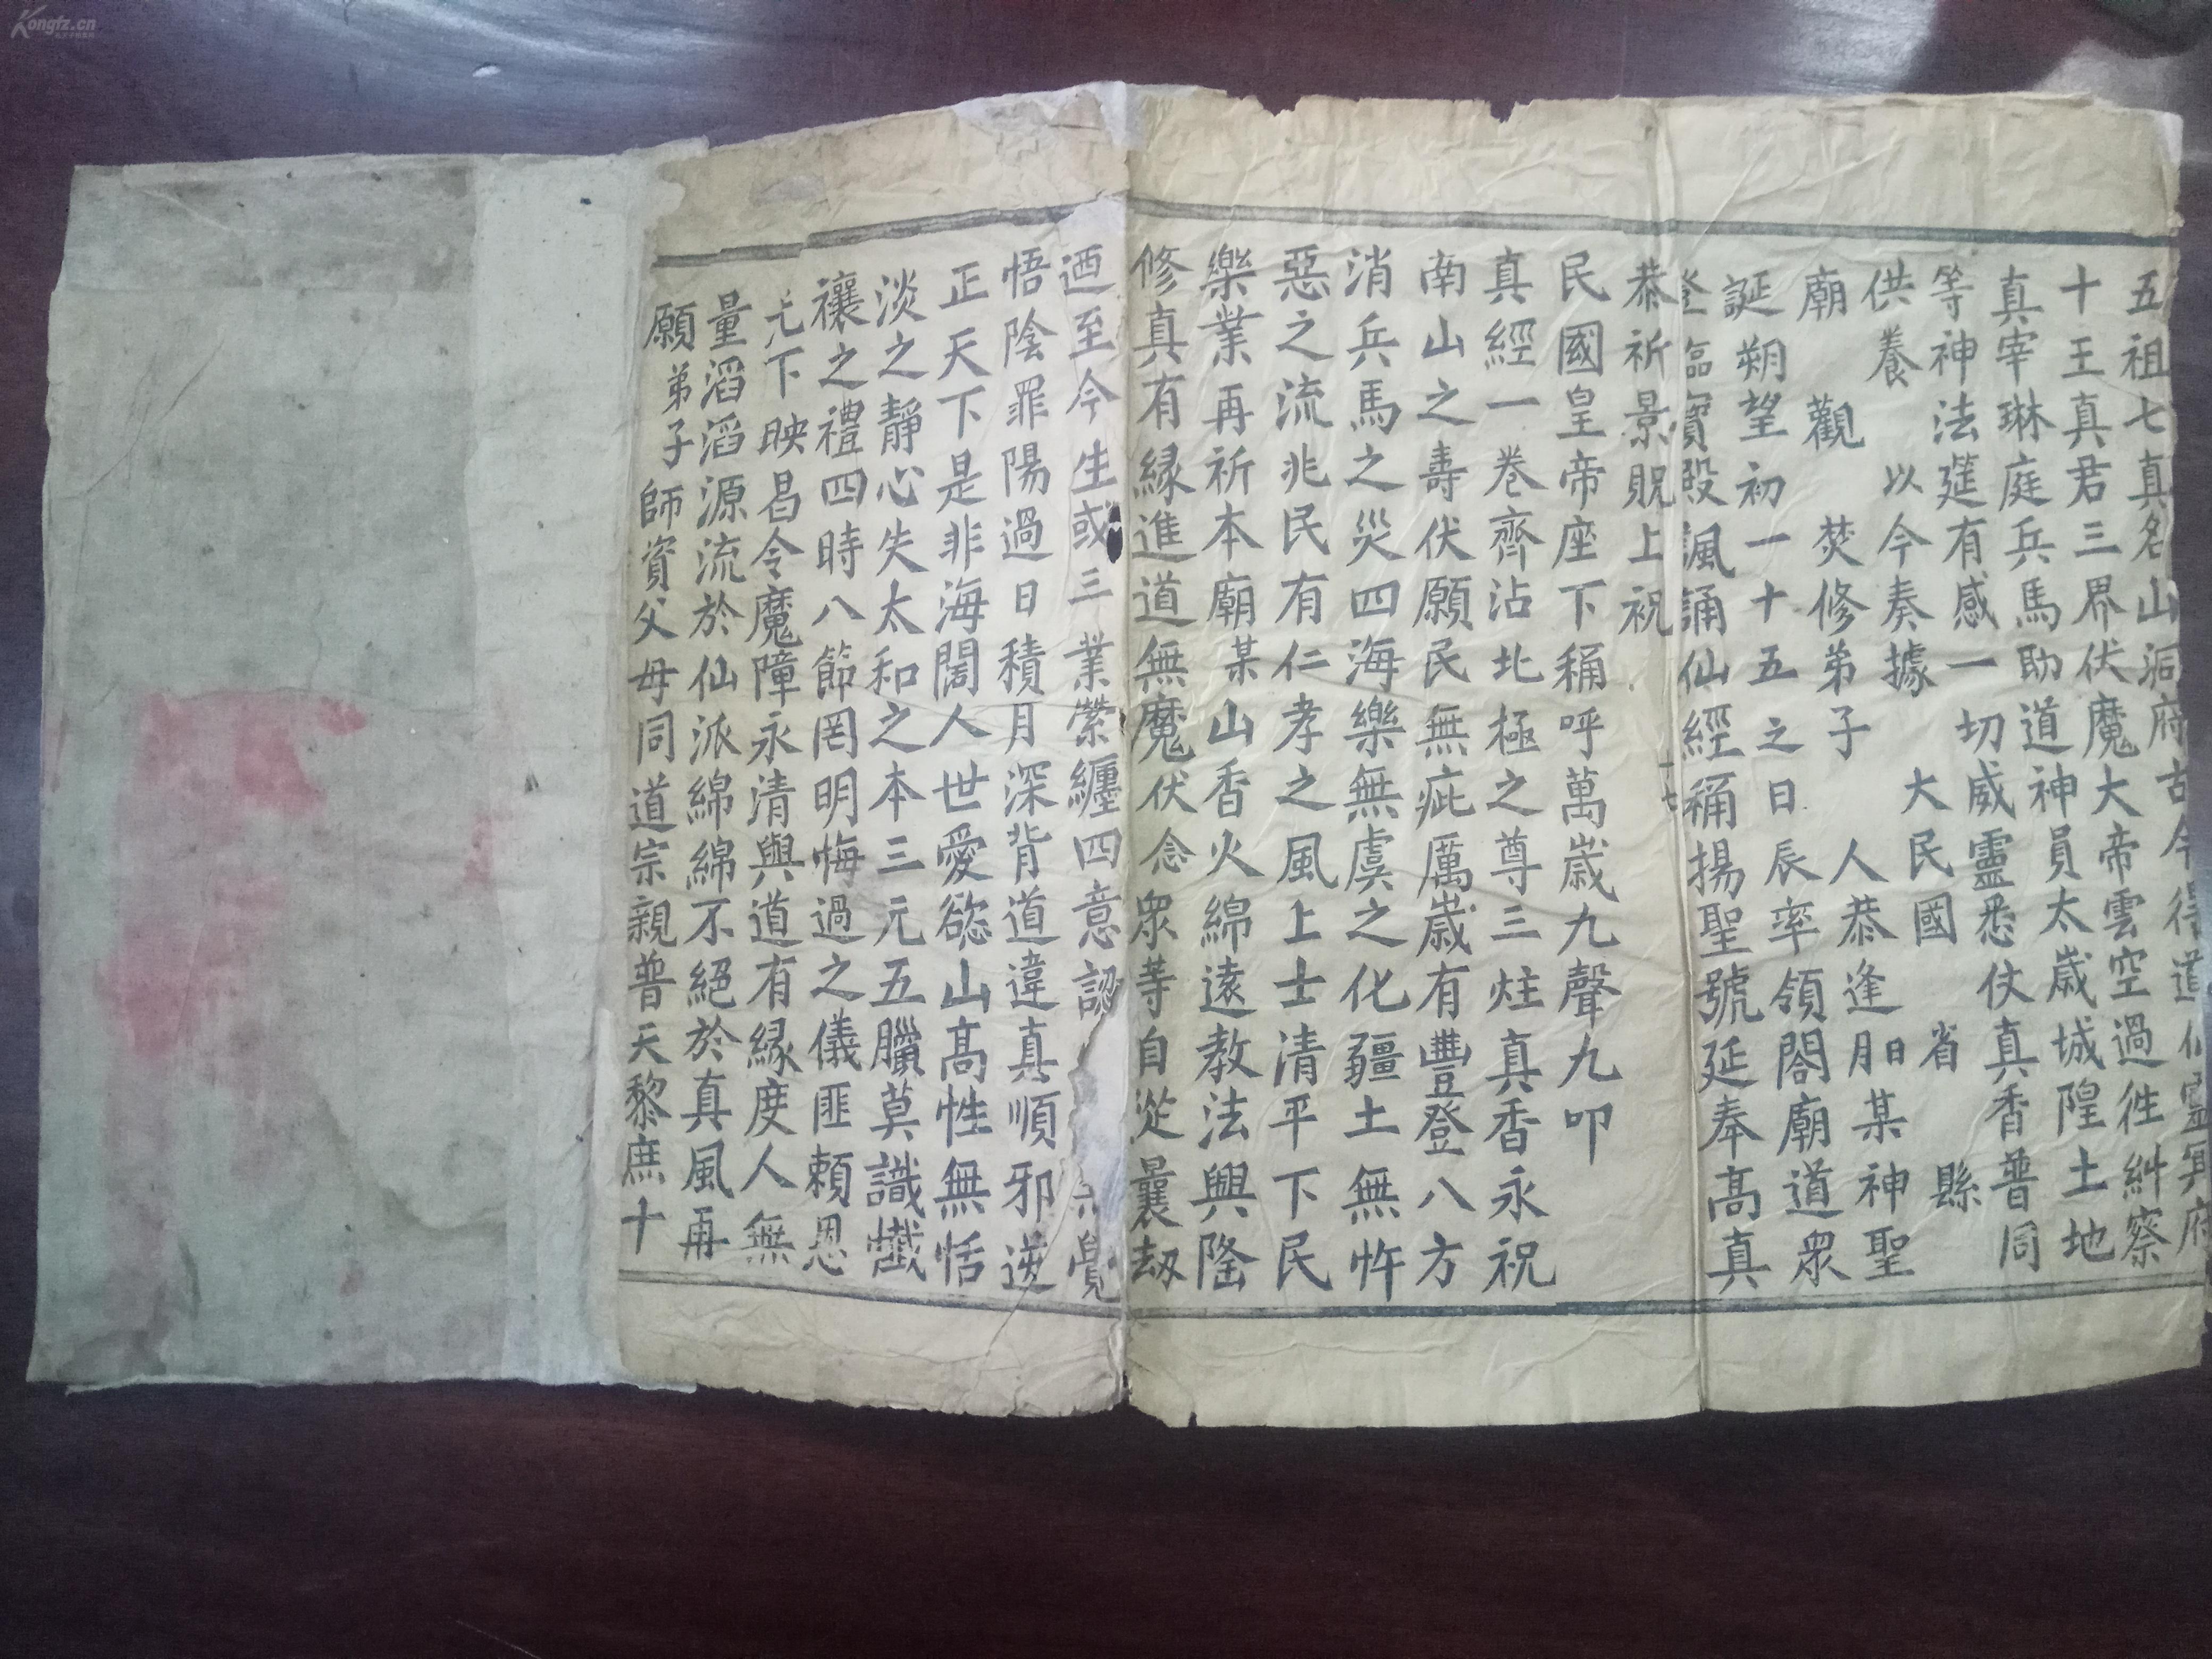 五祖七真名山洞府古今得道仙靈冥府
十王真君三界伏魔大帝雲空過徃糾察
真宰琳庭兵馬助道神員太歲城隍土地
等神法筵有感一切威靈悉仗真香普同
供養 以今奏據 大民國 省 縣
廟 觀 焚修弟子 人恭逢月日某神聖
誕朔望初一十五之日辰率領閤廟道眾
登臨寶殿諷誦仙經稱揚聖號延奉高真
十七
恭祈景貺上祝
民國皇帝座下稱呼萬歲九聲九叩
真經一卷齊沾北極之尊三炷真香永祝
南山之壽伏願民無疵厲歲有豐登八方
消兵馬之災四海樂無虞之化疆土無忤
惡之流兆民有仁孝之風上士清平下民
樂業再祈本廟某山香火綿遠教法興隆
修真有緣進道無魔伏念眾等自從曩劫
迺至今生或三業縈纏四意認 覺
悟陰罪陽過日積月深背道違真順邪逆
正天下是非海闊人世愛慾山高性無恬
淡之靜心失太和之本三元五臘莫識懺
禳之禮四時八節罔明悔過之儀匪賴恩
光下映昌令魔障永清與道有緣度人無
量滔滔源流於仙派綿綿不絕於真風再
願弟子師資父母同道宗親普天黎庶十
Kongfz.cn